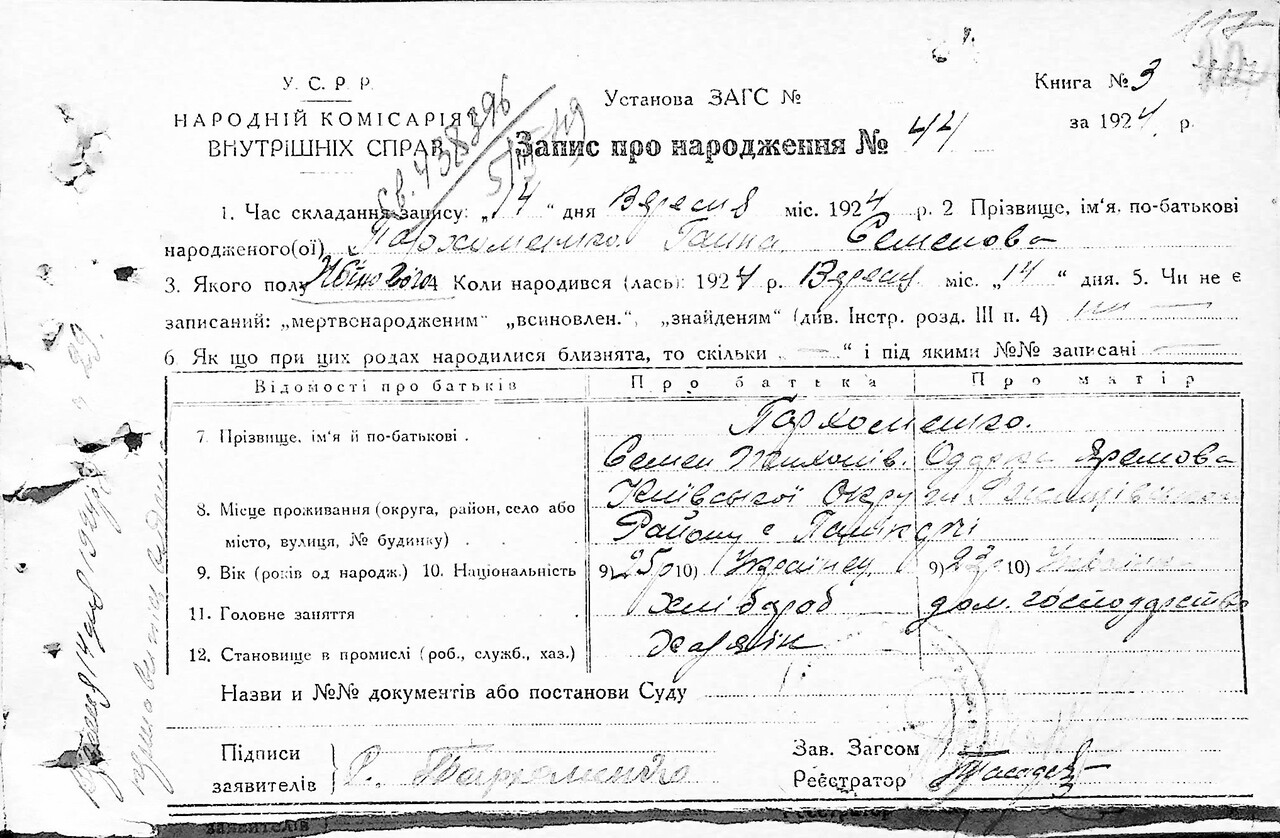 117
У. С. Р. Р.
НАРОДНІЙ КОМІСАРІЯТ
ВНУТРІШНІХ СПРАВ
Св. 438396
Установа ЗАГС №
Книга № 3
за 1924 р.
Запис про народження № 44
1. Час складання запису: „14“ дня Вересня міс. 1924 р. 2 Прізвище, ім'я, по-батькові
народженого(ої) Пархоменко Ганна Семенова
3. Якого полу Жіночого 4 Коли народився (лась): 1924 р. Вересн міс. „14“ дня. 5. Чи не є
записаний: „мертвонародженим“ „всиновлен.“, „знайденям“ (див. Інстр. розд. III п. 4) ні —
6. Як що при цих родах народилися близнята, то скільки „—“ і під якими №№ записані —
Відомості про батьків Про батька Про матір
7 Прізвище, ім'я й по-батькові . Пархоменко.
Семен Одарка Яремова
8. Місце проживання (округа, район, село або Київської Округи
місто, вулиця, № будинку) . Району с
9. Вік (років од народж.) 10. Національність 9) 25р 10) Українец 9) 23р 10) Українка
11. Головне заняття Хлібороб дом. господарство
12. Становище в промислі (роб., служб., хаз.) Хазяїн
Назви и №№ документів або постанови Суду
Підписи
заявителів
С. Пархоменко
Зав. Загсом
Реєстратор
заявителів
Реєстратор